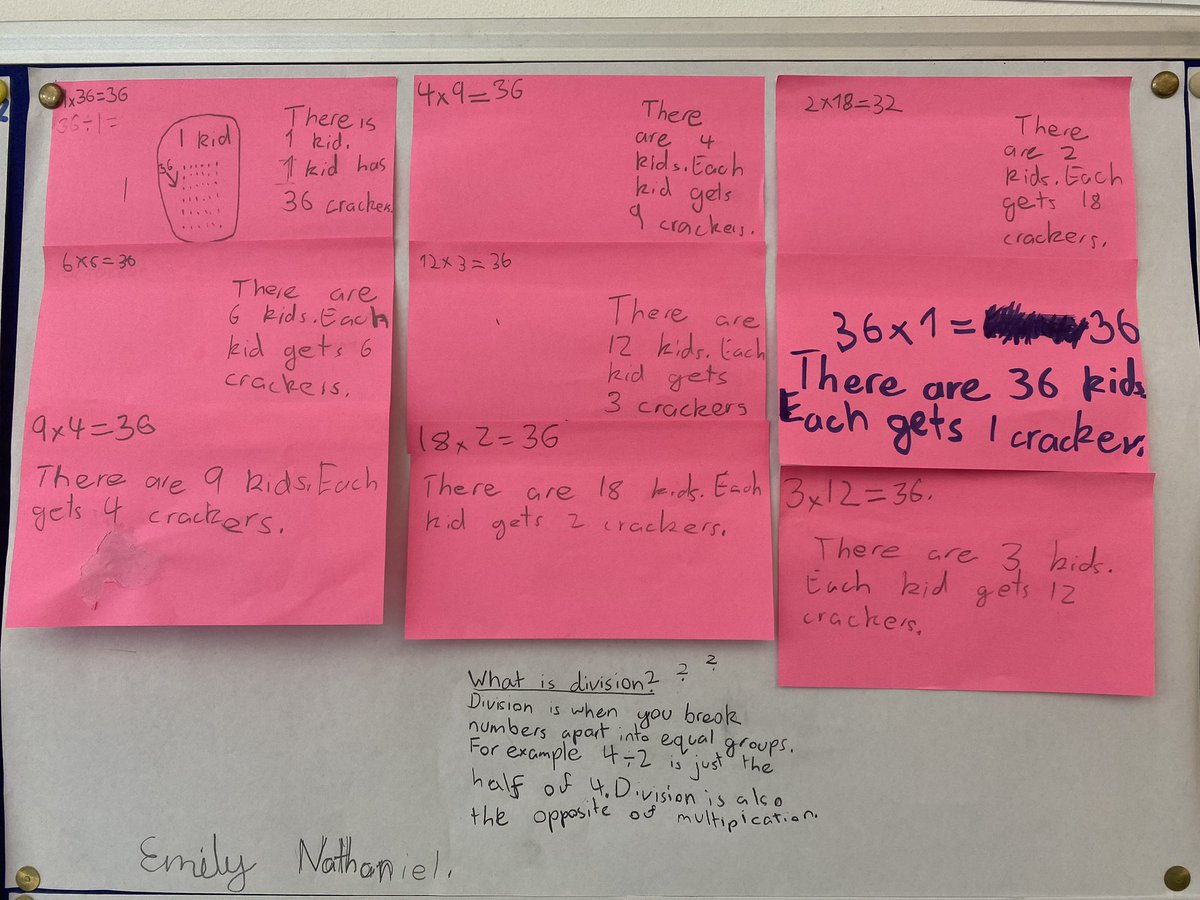 1x36=36
36÷1=
1 kid
36
1
There is
1 kid.
1 kid has
36 crackers.
4x9=36
There
are 4
kids.Each
kid gets
9 crackers.
2x18=32
There
are 2
kids.Each
gets 18
crackers.
6x6=36
There are
6 kids.Each
kid gets 6
crackers.
12x3=36
There are
12 kids.Each
kid gets
3 crackers
36x1= 36
There are 36 kids.
Each gets 1 cracker.
9x4=36
There are 9 kids.Each
gets 4 crackers.
18x2=36
There are 18 kids.Each
kid gets 2 crackers.
3x12=36.
There are 3 kids.
Each kid gets 12
crackers.
What is division? ? ?
Division is when you break
numbers apart into equal groups.
For example 4÷2 is just the
half of 4.Division is also
the opposite of multipication.
Emily Nathaniel.
2